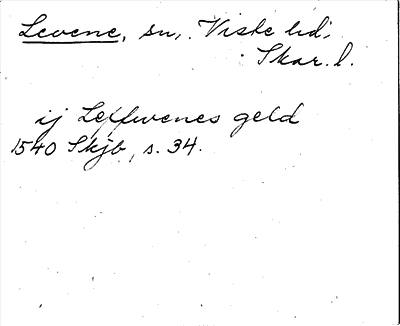 Levene, sn, Viste hd,
Skar. l.
ij Leffwenes geld
1540 Skjb, s. 34.